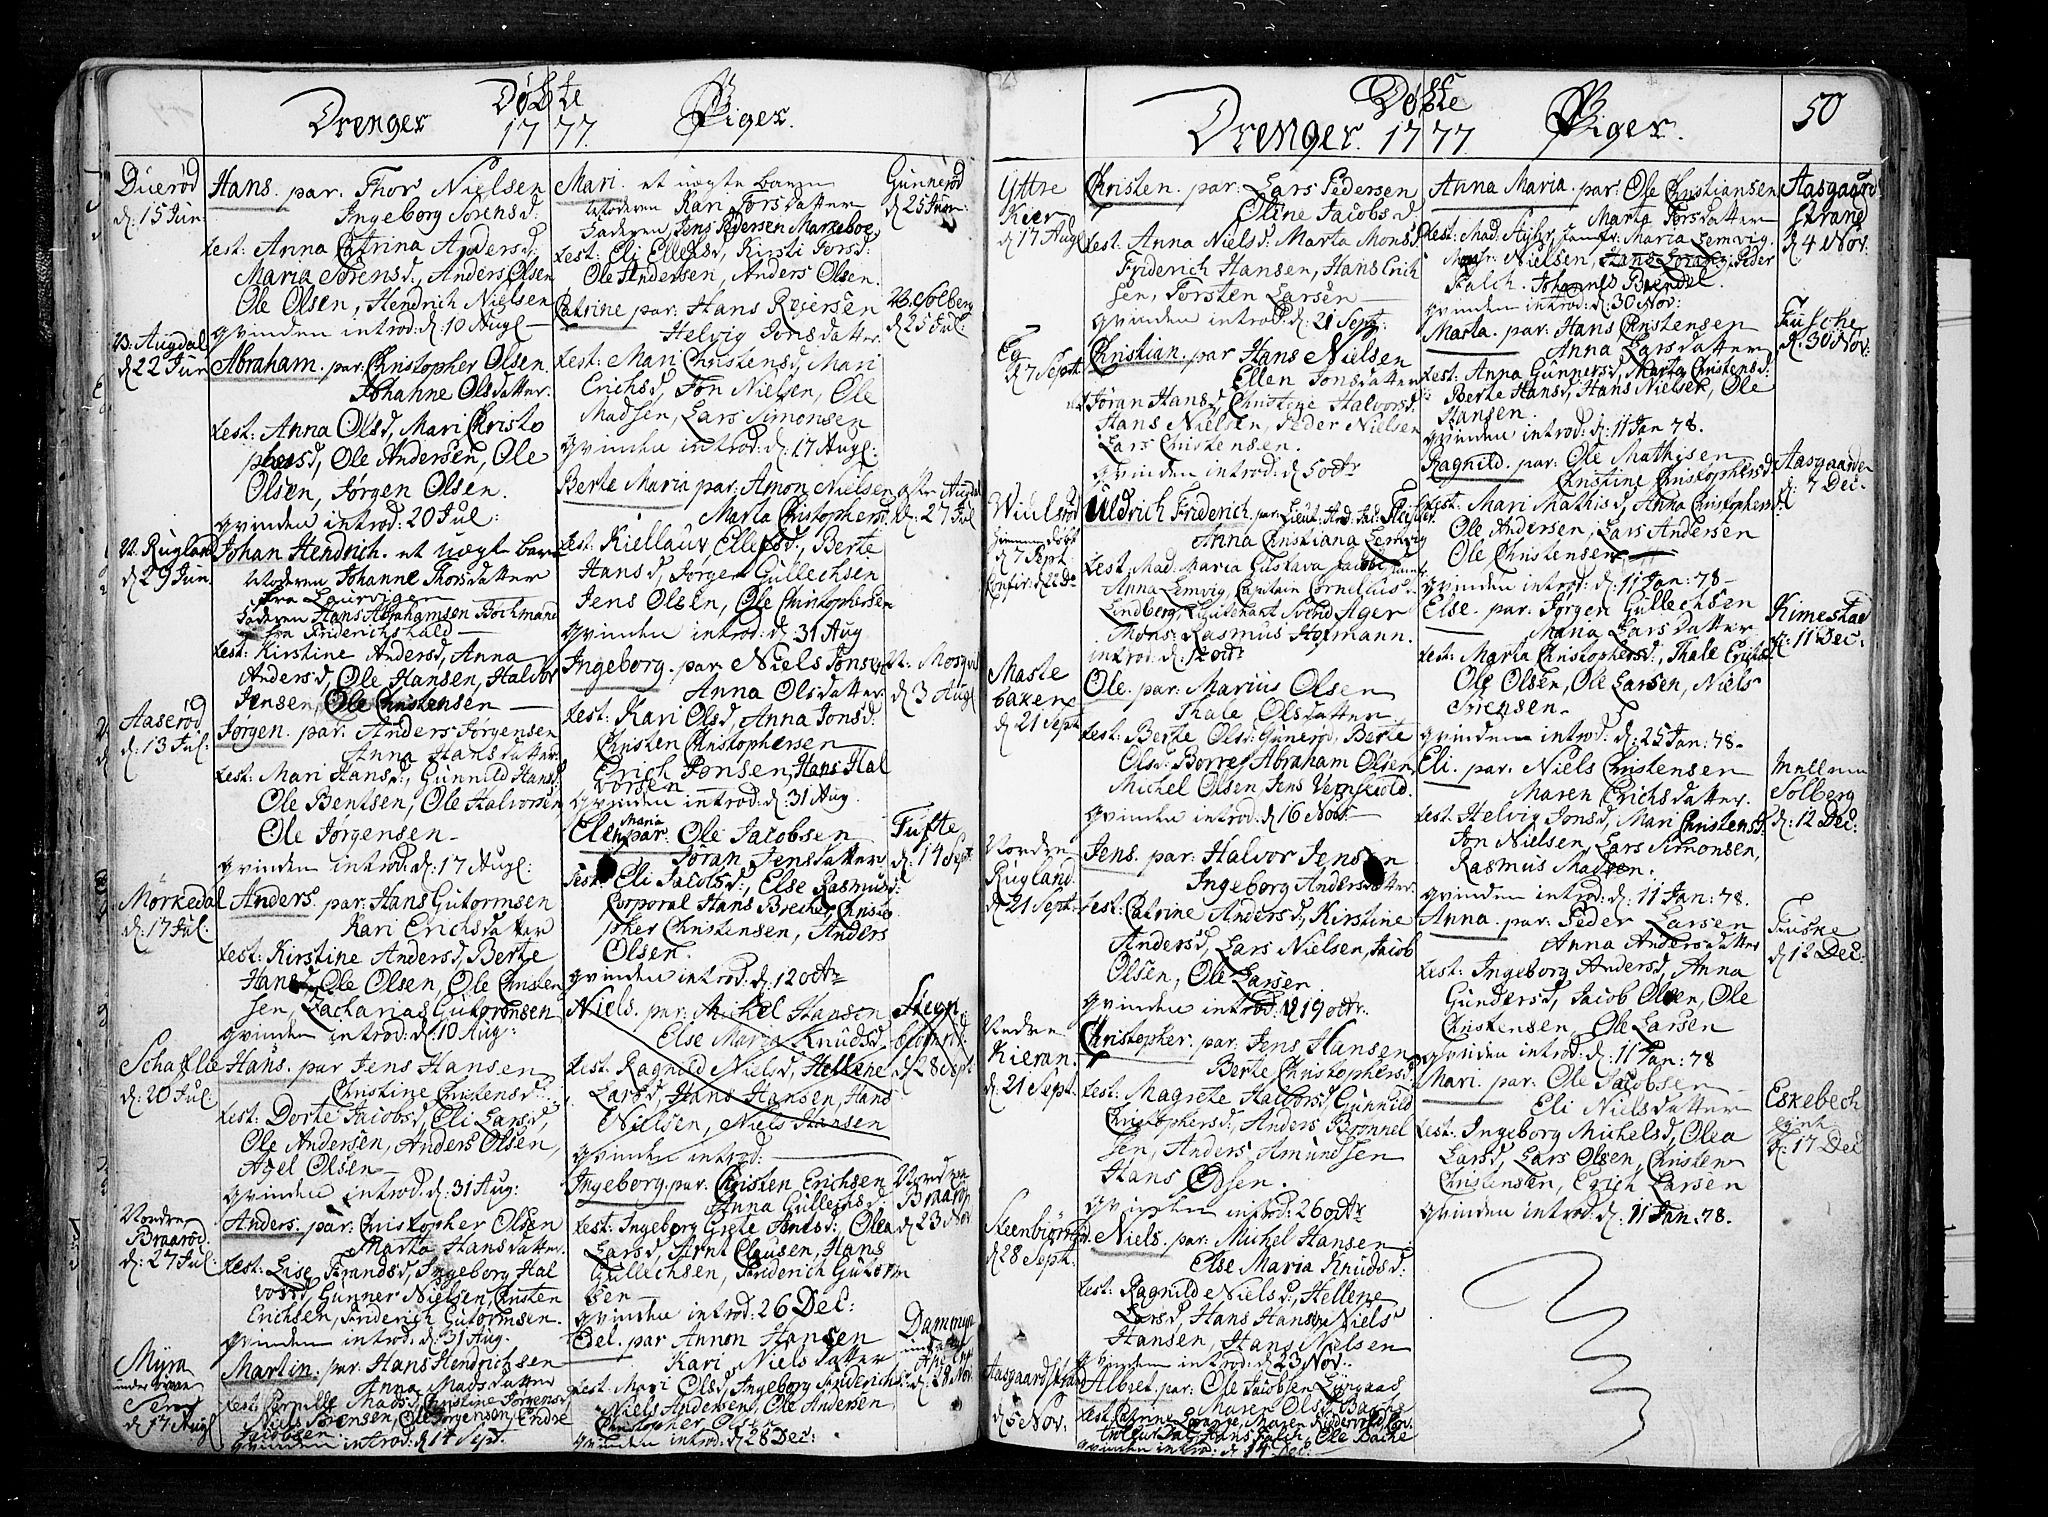 Døbte
Drenger 1777. Piger.
Duerød
d: 15 Jun:
Hans. par. Thor Nielsen
Ingeborg Sørensd:
test: Anna Catrina Andersd:
Maria Sørensd, Anders Olsen
Ole Olsen, Hendrich Nielsen
qvinden introd: d: 10 Augl
N. Augdal
d 22 Jun
Abraham. par: Christopher Olsen
Johanne Olsdatter.
test: Anna Olsd, Mari Christo
phersd, Ole Andersen, Ole
Olsen, Jørgen Olsen.
qvinden introd: 20 Jul:
N. Rugland
d 29 Jun.
Johan Hendrich. et uægt barn
Moderen Johanne Thorsdatter
fra Laurvigen
Faderen Hans Abrahamsen Bochmann
fra Friderichshald
test: Kirstine Andersd, Anna
Andersd, Ole Hansen, Halvor
Jensen, Ole Christensen
Aaserød
d: 13 Jul:
Jørgen. par: Anders Jørgensen
Anna Hansdatter.
test: Mari Hansd:, Gunnild Hansd
Ole Bentsen, Ole Halvorsen
Ole Jørgensen
qvinden introd: d: 17 Augl:
Mørkedal
d: 17 Jul:
Anders. par: Hans Gutormsen
Kari Erichsdatter
test: Kirstine Andersd, Berte
Hansd, Ole Olsen, Ole Christen
sen, Zacharias Gutormsen
qvinden introd: d: 10 Aug:
Schafle
d: 20 Jul
Hans. par Jens Hansen
Christine Christensd:
test: Dorte Jacobsd, Eli Larsd,
Ole Andersen, Anders Olsen,
Axel Olsen
qvinden introd: d: 31 Aug:
Nordre
Braarød.
d: 27 Jul:
Anders. par: Christopher Olsen
Marta Hansdatter.
test: Lise Frandsd, Ingeborg Hal
vorsd, Gunner Nielsen, Christen
Erichsen, Friderich Gutormsen
qvinden introd: d: 31 Aug.
Myra
d 17 Augl
Martin. par. Hans Hendrichsen
Anna Madsdatter
test: Pernille Madsd, Christine Jørgensd,
Niels Sørensen, Ole Jørgensen, Endre
Jacobsen.
qvinden introd: d: 14 Sept.
Mari. et uægte barn
Moderen Kari Torsdatter
Faderen Jens Pedersen Markeboe
test: Eli Ellefsd, Kirsti Torsd:
Ole Andersen, Anders Olsen.
Gunnerød
d 25 Jun:
Catrine par: Hans Reiersen
Helvig Jonsdatter
test: Mari Christensd, Mari
Erichsd, Jon Nielsen, Ole
Madsen, Lars Simonsen
qvinden introd: d: 17 Augl:
N. Solberg
d 25 Jul:
Berte Maria par: Amon Nielsen
Marta Christophersd
test: Kiellauv Ellefsd:, Berte
Hansd, Jørgen Gullechsen
Jens Olsen, Ole Christophersen
qvinden introd: d: 31 Aug
østr Augdal
d: 27 Jul
Ingeborg. par Niels Jonsen
Anna Olsdatter
test: Kari Olsd, Anna Jonsd:
Christen Christophersen
Erich Jonsen, Hans Hal
vorsen
qvinden introd: d: 31 Aug.
d 3 Augl
Maria
Ellen par: Ole Jacobsen
Jøran Jensdatter
test: Eli Jacobsd:, Else Rasmusd:
Corporal Hans Brecke, Christo
pher Christensen, Anders
Olsen.
qvinden introd: d: 12 octr
Tufte
d: 14 Sept:
Niels. par: Michel Hansen
Else Maria Knudsd,
test: Ragnild Nielsd, Hellene
Larsd, Hans Hansen, Hans
Nielsen, Niels Hansen
qvinden introd:
d 28 Sept
Ingeborg. par: Christen Erichsen
Anna Gullechsd:
test: Ingeborg Grete Jensd:, Olea
Larsd, Arnt Clausen, Hans
Gullechsen, Friderich Gutorm
sen
qvinden introd: 26 Dec:
Nordre
Braarø
d 23 Nov
Edel. par Annon Hansen
Kari Nielsdatter
test: Mari Olsd, Ingeborg Friderichsd:
Niels Andersen, Ole Andersen
Christopher Olsen
qvinden introd: d 28 Dec:
Dammyr
Døbte
Drenger. 1777. Piger.
50
Yttre
Kier
d 17 Augl
Christen. par: Lars Pedersen
Oline Jacobsd
test: Anna Nielsd: Marta Monsd
Friderich Hansen, Hans Erich
sen, Torsten Larsen
qvinden introd: d: 21 Sept:
Eg
d 7 Sept
Christian. par Hans Nielsen
Ellen Jonsdatter
test Jøran Hansd, Christine Halvorsd:
Hans Nielsen, Peder Nielsen
Lars Christensen.
qvinden introd: d 5 octr
d 7 Sept
Confir: d 22 Do
Uldrich Friderich. par: Lieut: And: Jac: Fleischer
Anna Christiana Lemvig
test Mad. Maria Gustava Jacobi,
Anna Lemvig, Capitain Cornellius
Lindberg, Lieutenant Svend Ager
Mons: Rasmus Hofmann.
introd: d: 12 octr
Maste
baken
d 21 Sept
Ole. par: Marius Olsen
Thale Olsdatter
test: Berte Olsd: Gunerød, Berte
Olsd: Borre, Abraham Olsen,
Michel Olsen, Jens Vernskiold.
qvinden introd: d 16 Nov:
Nordre
Rugland.
d 21 Sept
Jens. par: Halvor Jensen
Ingeborg Andersdatter.
test: Catrine Andersd, Kirstine
Andersd, Lars Nielsen, Jacob
Olsen, Ole Larsen
qvinden introd: d 19 octr.
Nordre
Kieran.
d: 21 Sept.
Christopher. par: Jens Hansen
Berte Christophersd.
test: Magrete Halvorsd, Gunnild
Christophersd:, Anders Brønnel
sen, Anders Amundsen
Hans Olsen.
qvinden introd: 26 octr
Steenbiørnrød
d 28 Sept.
Niels. par: Michel Hansen
Else Maria Knudsd:
test: Ragnilde Nielsd:, Hellene
Larsd, Hans Hansen, Niels
Hansen, Hans Nielsen
qvinden introd: d 23 Nov.
Aasgaardstrand
d 5 Nov.
Albret. par: Ole Jacobsen
Maren Olsd. Bache
Ole Bache
qvinden introd: d 14 Dec:
Anna Maria. par: Ole Christiansen
Marta Torsdatter
test: Mad. Ager, Jomfr: Maria Lemvig.
Nielsen, Hans Lorang, Peder
Falch. Johannes Brendel.
qvinden introd: d: 30 Nov:
Aasgaard
strand
d 4 Nov.
Marta. par: Hans Christensen
Anna Larsdatter
test: Anna Gunnersd, Marta Christensd:
Berte Hansd, Hans Nielsen, Ole
Hansen.
qvinden introd: d: 11 Jan 78.
Fusche
d. 30 Nov:
Ragnild. par: Ole Mathisen
Christine Christophersd
test: Mari Mathisd, Anna Christophersd
Ole Andersen, Lars Andersen
Ole Christensen
qvinden introd: d: 11 Jan: 78
Aasgaarden
d: 7 Dec:
Else. par: Jørgen Gullechsen
Maria Larsdatter
test: Maria Christophersd:, Thale Erichsd
Ole Olsen, Ole Larsen, Niels
Sørensen.
qvinden introd: d: 25 Jan: 78.
Kimestad
d: 11 Dec:
Eli. par: Niels Christensen
Maren Erichsdatter.
test: Helvig Jonsd, Mari Christensd:
Jon Nielsen, Lars Simonsen,
Rasmus Madsen.
qvinden introd: d: 11 Jan: 78.
Mellem
Solberg
d: 12 Dec:
Anna. par: Peder Larsen
Anna Andersdatter
test: Ingeborg Andersd, Anna
Gundersd, Jacob Olsen, Ole
Christensen, Ole Larsen
qvinden introd: d: 11 Jan: 78
Fuske
d 12 Dec:
Mari. par: Ole Jacobsen
Eli Nielsdatter
test: Ingeborg Michelsd, Olea
Larsd, Lars Olsen, Christen
Christensen, Erich Larsen
qvinden introd: d: 11 Jan. 78.
Eskebech
d: 17 Dec